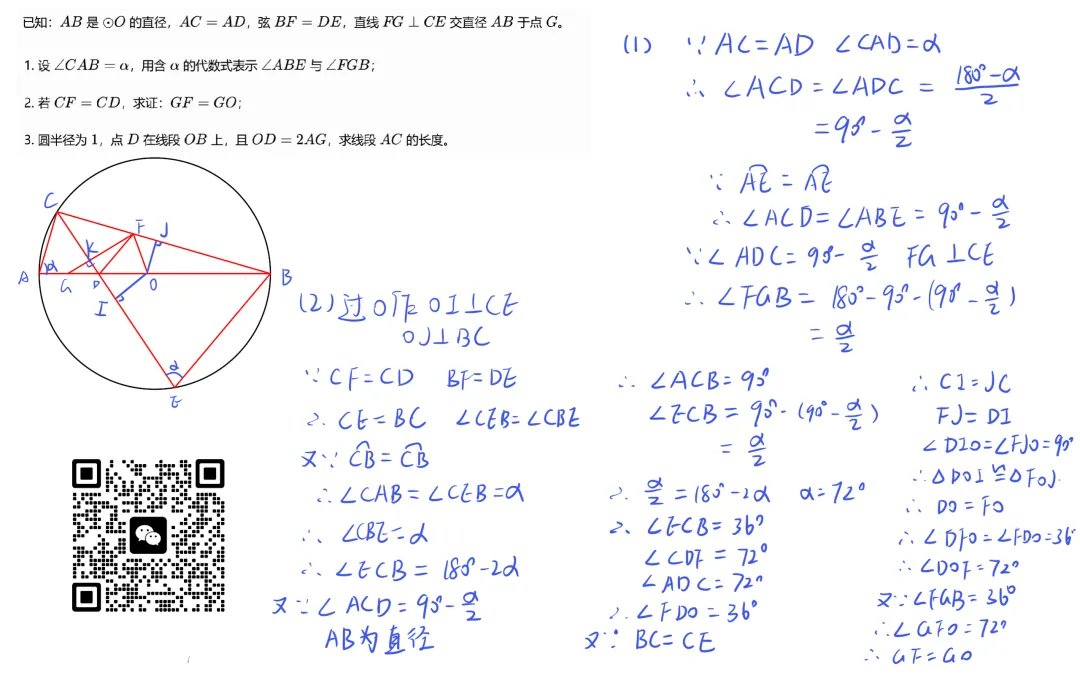 已知：AB 是 ⊙O 的直径，AC = AD，弦 BF = DE，直线 FG ⊥ CE 交直径 AB 于点 G。
1. 设 ∠CAB = α，用含 α 的代数式表示 ∠ABE 与 ∠FGB；
2. 若 CF = CD，求证：GF = GO；
3. 圆半径为 1，点 D 在线段 OB 上，且 OD = 2AG，求线段 AC 的长度。
C
F
J
K
A
α
G
D
O
B
I
α
E
(1) ∵ AC=AD ∠CAD=α
∴ ∠ACD = ∠ADC = (180°-α)/2
= 90° - α/2
∵ ⌒AE = ⌒AE
∴ ∠ACD = ∠ABE = 90° - α/2
∵ ∠ADC = 90° - α/2 FG⊥CE
∴ ∠FGB = 180° - 90° - (90° - α/2)
= α/2
(2) 过O作 OI⊥CE
OJ⊥BC
∵ CF=CD BF=DE
∴ CE=BC ∠CEB=∠CBE
又∵ ⌒CB = ⌒CB
∴ ∠CAB=∠CEB=α
∴ ∠CBE=α
∴ ∠ECB = 180°-2α
又∵ ∠ACD = 90° - α/2
AB为直径
∴ ∠ACB=90°
∠ECB = 90° - (90° - α/2)
= α/2
∴ α/2 = 180°-2α α=72°
∴ ∠ECB=36°
∠CDF = 72°
∠ADC=72°
∴ ∠FDO=36°
又∵ BC=CE
∴ CI=JC
FJ=DI
∠DIO=∠FJO=90°
∴ △DOI≌△FOJ
∴ DO=FO
∴ ∠DFO=∠FDO=36°
∴ ∠DOF=72°
又∵ ∠FGB=36°
∴ ∠GFO=72°
∴ GF=GO